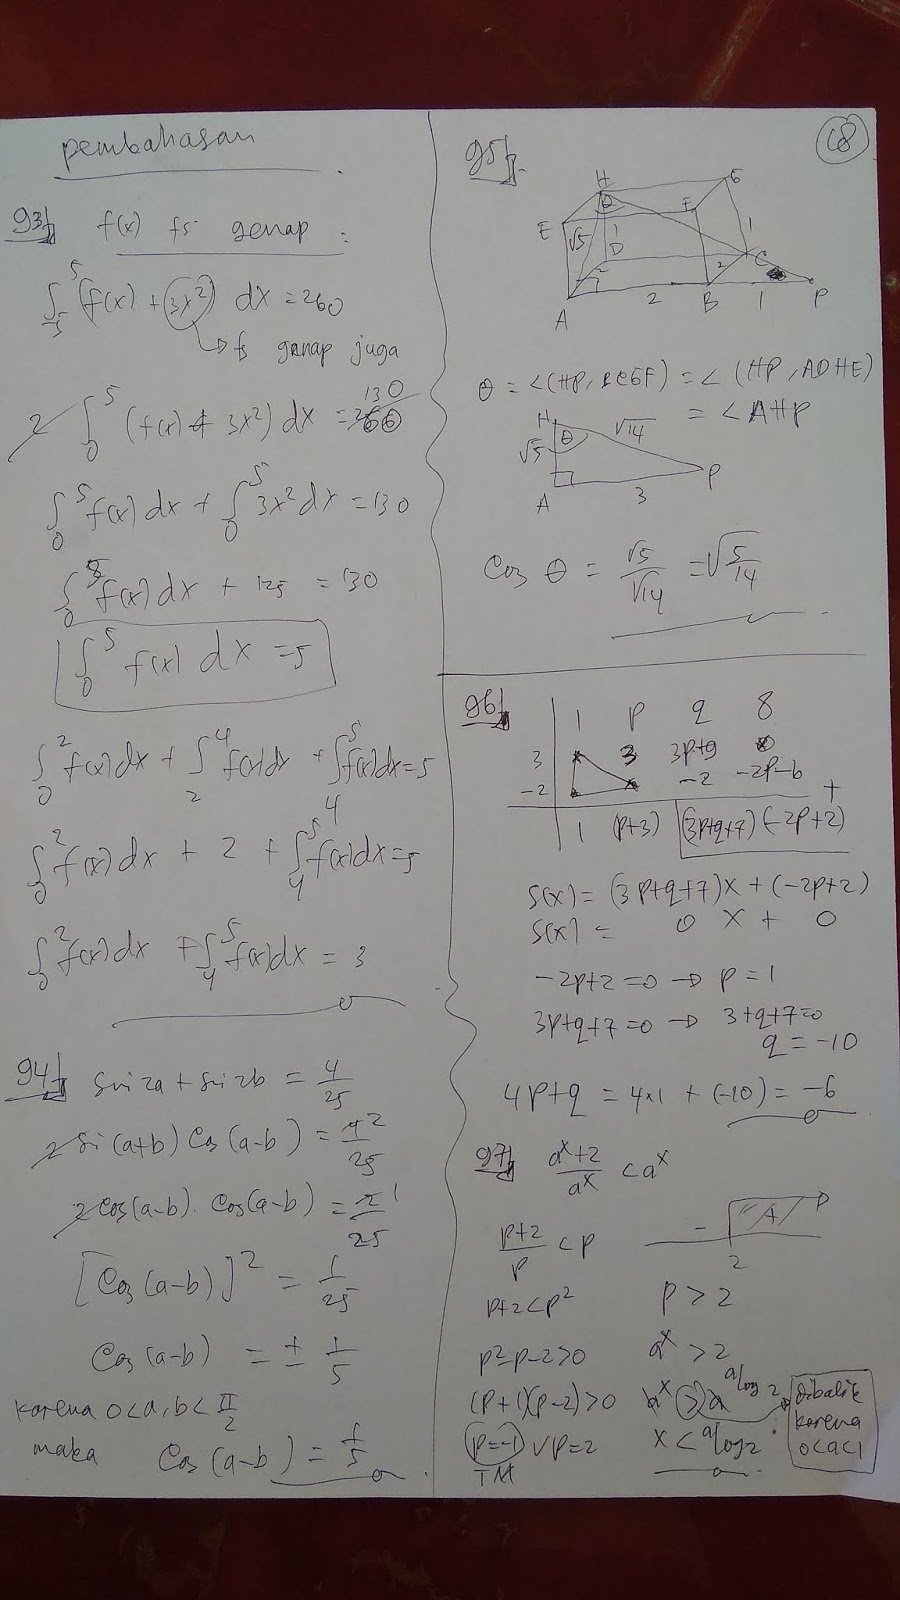 pembahasan
93) f(x) fs genap :
∫₋₅⁵ (f(x) + 3x²) dx = 260
↳ fs genap juga
2 ∫₀⁵ (f(x) + 3x²) dx = 260 130
∫₀⁵ f(x) dx + ∫₀⁵ 3x² dx = 130
∫₀⁵ f(x) dx + 125 = 130
∫₀⁵ f(x) dx = 5
∫₀² f(x) dx + ∫₂⁴ f(x) dx + ∫₄⁵ f(x) dx = 5
∫₀² f(x) dx + 2 + ∫₄⁵ f(x) dx = 5
∫₀² f(x) dx + ∫₄⁵ f(x) dx = 3
94) sin 2a + sin 2b = 4/25
2 sin (a+b) Cos (a-b) = 4 2/25
2 Cos (a-b) . Cos (a-b) = 2 1/25
[Cos (a-b)]² = 1/25
Cos (a-b) = ± 1/5
karena 0 < a, b < π/2
maka Cos (a-b) = 1/5
68
95)
H G
E F
√5 θ 1 D 1
2 C
A 2 B 1 P
θ = ∠(HP, BCGF) = ∠(HP, ADHE)
= ∠AHP
H √14
√5 θ P
A 3
Cos θ = √5/√14 = √(5/14)
96)
1 p q 8
3 * 3 3p+9 *
-2 * * -2 -2p-6 +
1 (p+3) (3p+q+7) (-2p+2)
S(x) = (3p+q+7)x + (-2p+2)
S(x) = 0 x + 0
-2p+2=0 → p = 1
3p+q+7=0 → 3+q+7=0
q = -10
4p+q = 4×1 + (-10) = -6
97) (aˣ+2)/aˣ < aˣ
(p+2)/p < p
p+2 < p²
p²-p-2 > 0
(p+1)(p-2) > 0
p=-1 ∨ p=2
TM
- A
2
p > 2
aˣ > 2
aˣ > a^(ᵃlog 2)
x < ᵃlog 2
dibalik
karena
0<a<1